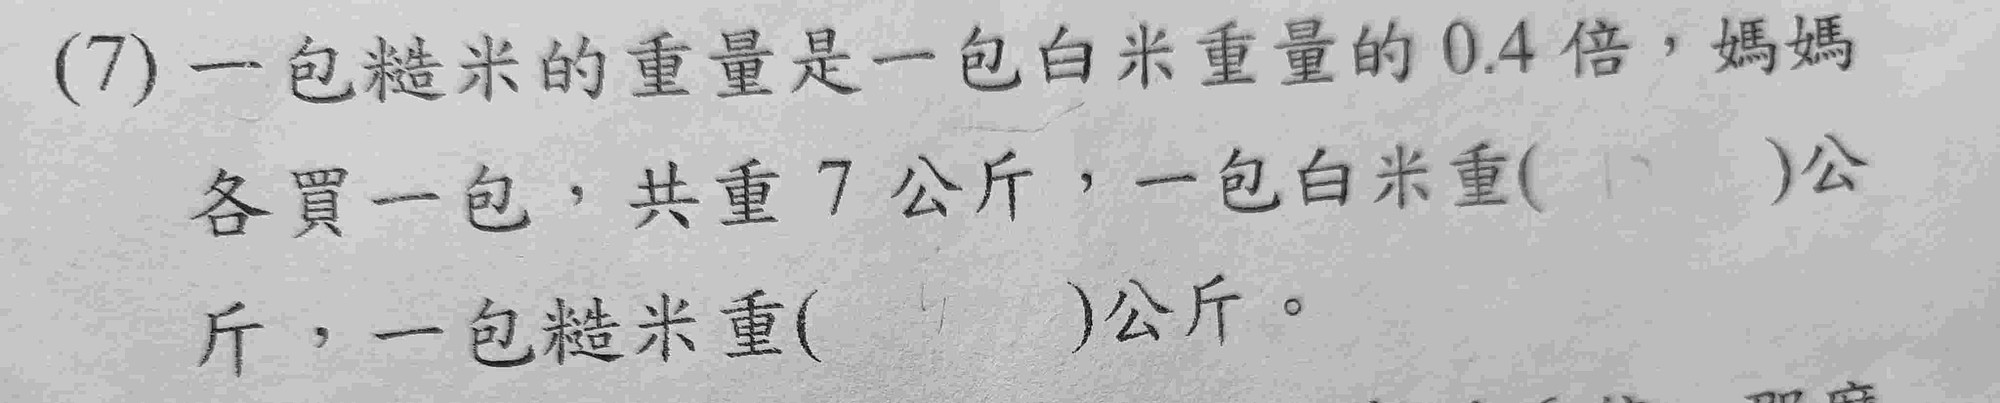 (7) 一包糙米的重量是一包白米重量的 0.4 倍，媽媽
各買一包，共重 7 公斤，一包白米重(　　　)公
斤，一包糙米重(　　　)公斤。